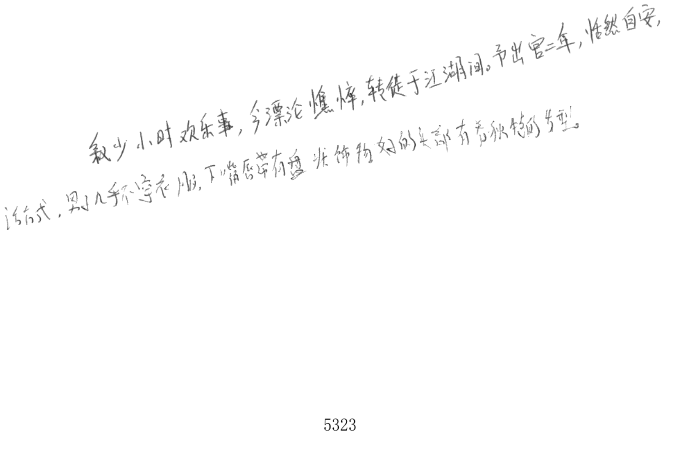 叙少小时欢乐事，今漂沦憔悴，转徒于江湖间。予出官二年，恬然自安，
活方式，男人几乎不穿衣服，下嘴唇带有盘状饰物，妇的头部有着独特的发型。
5323